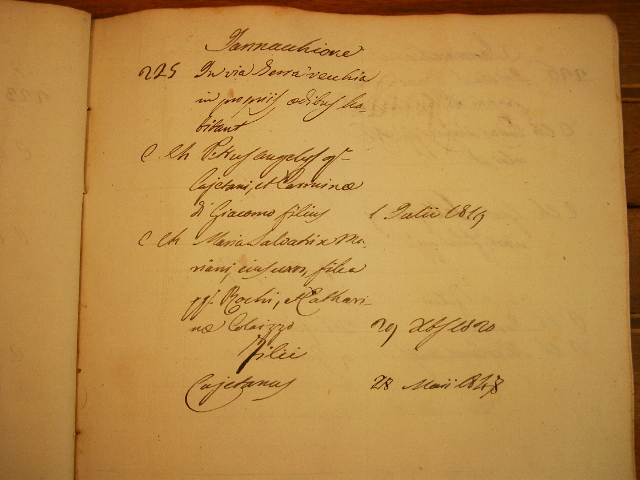 Iannacchione
225 In via Serra vecchia
in propriis ædibus ha-
bitant
C Ch Petrus Angelus q.m
Cajetani, et Carminæ
di Giacomo filius 1 Julii 1819
C Ch Maria Salvatrix Ma-
riani, ejus uxor, filia
qq. Rochi, et Cathari-
næ Colaizzo 29 Xbris 1820
Filii
Cajetanus 28 Maii 1848